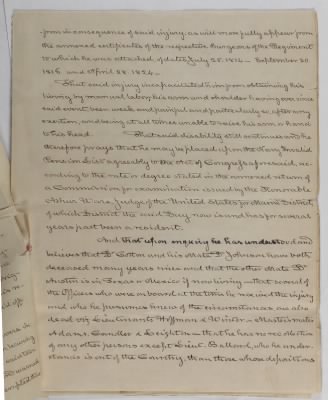 from in consequence of said injury, as will more fully appear from
the annexed certificates of the respective Surgeons of the Regiment
to which he was attached, of date July 25. 1814 — September 20
1816 and April 28. 1824 —
That said injury incapacitated him from obtaining his
living by manual labor, his arm and shoulder having ever since
said event been weak and painful and particularly so, after any
exertion, and being at all times unable to raise his arm or hand
to his head. That said disability still continues and he
therefore prays that he may be placed upon the Navy Invalid
Pension List agreeably to the Act of Congress aforesaid, ac-
cording to the rate or degree stated in the annexed return of
a Commission for examination issued by the Honorable
Ashur Ware, Judge of the United States for Maine District,
of which District the said Bray now is and has for several
years past been a resident.
And that upon enquiry he has understood and
believes that Dr Cotton and his Mate Dr Johnson have both
deceased many years since and that the other Mate Dr
Austin is in Texas or Mexico if now living — that several of
the Officers who were on board at the time he received the injury
and who he presumes knew of the circumstances are also
dead viz Lieutenants Hoffman & Winter — Masters mates
Adams, Candler & Leighton — that he has no recollection
of any other persons except Lieut. Ballard, who he under-
stands is out of the Country, than those whose depositions